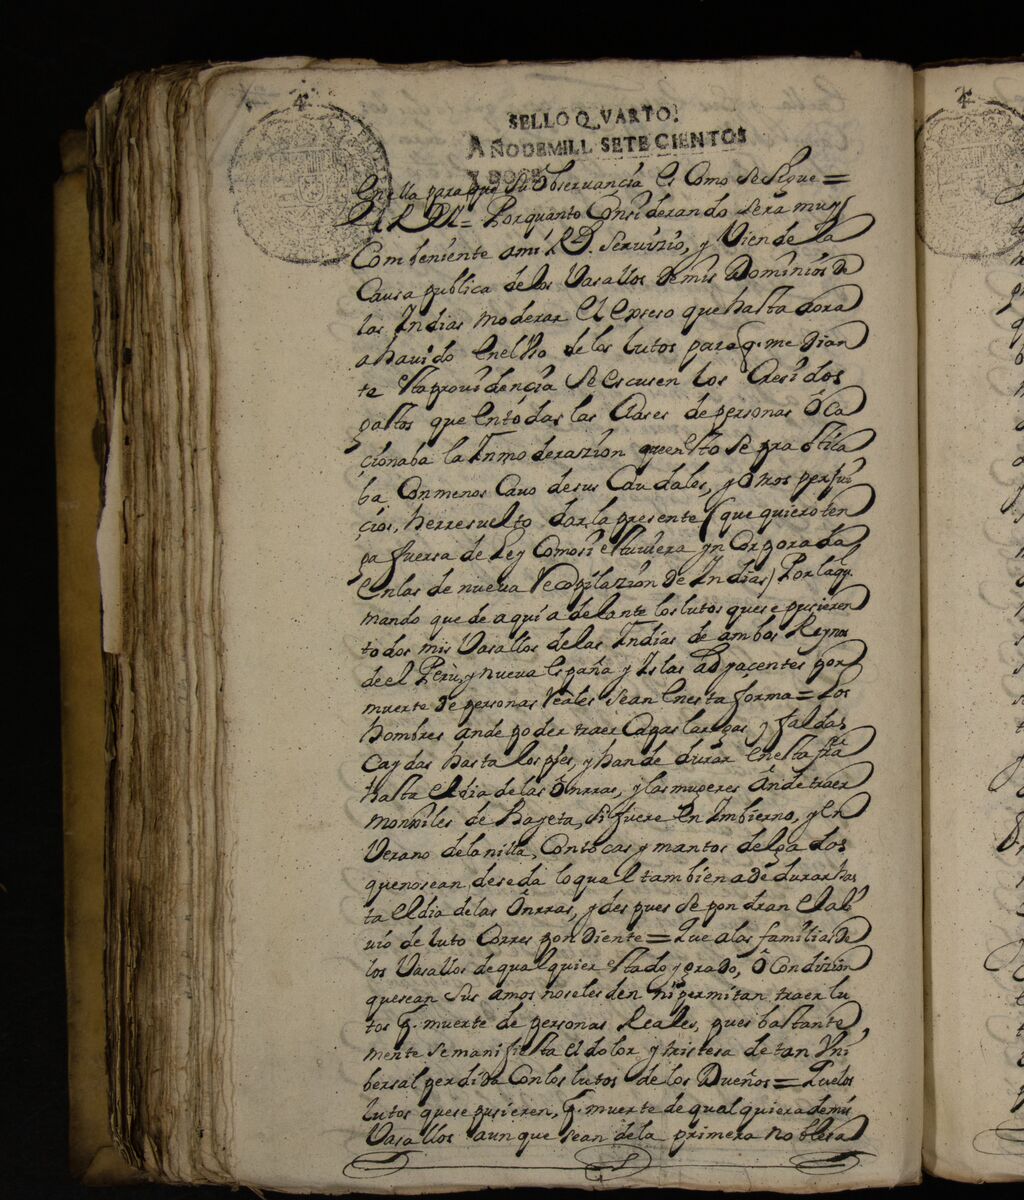 4
SELLO QVARTO;
AÑO DE MILL SETECIENTOS
Y DOCE
Enella para que su Observancia es Como se Sigue =
El Rey = Por quanto Considerando será muy
Combeniente ami Rl. Servizio, y Vien de la
Causa publica de los Vasallos de mis Dominios de
las Indias moderar El Exseso que hasta aora
a havido Enel Uso de los lutos para q. median
te esta providencia Se escusen los Cresidos
gastos que En todas las Clases de personas Oca
cionaba la Inmoderazion que en esto se practica
ba Con menos Cavo de sus Caudales, y otros perjui
cios, he rresuelto dar la presente (que quiero ten
ga fuersa de Ley Como si estuviera yncorporada
En las de nueva Recopilazion de Indias) Por la q.
mando que de aquí adelante los lutos que se pusieren
todos mis Vasallos de las Indias de ambos Reynos
de el Perù, y nueva España y Islas Adjacentes por
muerte de personas Reales sean En esta forma = Los
hombres ande poder traer Capas largas y faldas
Caydas hasta los pies, y han de durar En esta fra
hasta El dia de las Onrras, y las mugeres ànde traer
monxiles de Bayeta, Si fuere En Imbierno, y En
Verano de lanilla, Con tocas y mantos delgados
que no sean de seda lo qual tambien a de durar has
ta El dia de las Onrras, y despues Se pondran el ali
vio de luto Correspondiente = Que a las familias de
los Vasallos de qualquier estado y grado, ô Condizion
que sean Sus amos no se les den ni permitan traer lu
tos p. muerte de personas Reales, pues bastante
mente se manifiesta el dolor y tristesa de tan Vni
bersal perdida Con los lutos de los Dueños = Que los
lutos que se pusieren, p. muerte de qualquiera de mis
Vasallos aunque sean de la primera noblesa
4